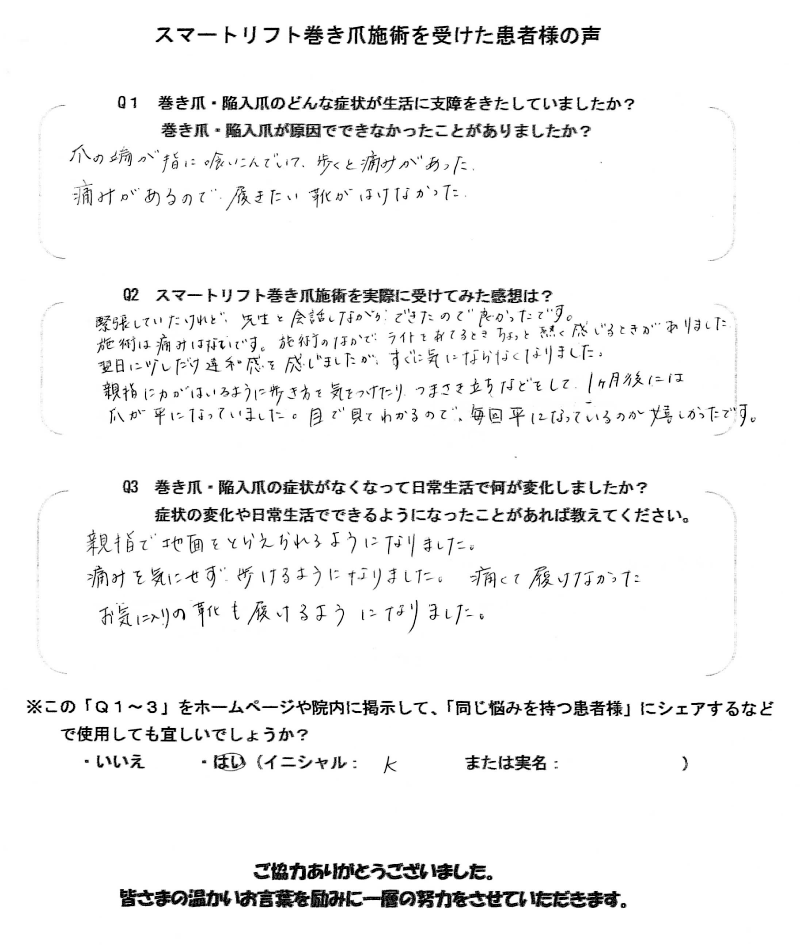 スマートリフト巻き爪施術を受けた患者様の声
Q1 巻き爪・陥入爪のどんな症状が生活に支障をきたしていましたか？
巻き爪・陥入爪が原因でできなかったことがありましたか？
爪の端が指に喰いこんでいて、歩くと痛みがあった。
痛みがあるので、履きたい靴がはけなかった。
Q2 スマートリフト巻き爪施術を実際に受けてみた感想は？
緊張していたけれど、先生と会話しながらできたので良かったです。
施術は痛みはないです。施術のなかでライトをあてるときちょっと熱く感じるときがありました
翌日に少しだけ違和感を感じましたが、すぐに気にならなくなりました。
親指に力がはいるように歩き方を気をつけたり、つまさき立ちなどをして、1ヶ月後には
爪が平になっていました。目で見てわかるので、毎回平になっているのが嬉しかったです。
Q3 巻き爪・陥入爪の症状がなくなって日常生活で何が変化しましたか？
症状の変化や日常生活でできるようになったことがあれば教えてください。
親指で地面をとらえられるようになりました。
痛みを気にせず、歩けるようになりました。 痛くて履けなかった
お気に入りの靴も履けるようになりました。
※この「Q1～3」をホームページや院内に掲示して、「同じ悩みを持つ患者様」にシェアするなど
で使用しても宜しいでしょうか？
・いいえ ・はい（イニシャル： K または実名： ）
ご協力ありがとうございました。
皆さまの温かいお言葉を励みに一層の努力をさせていただきます。